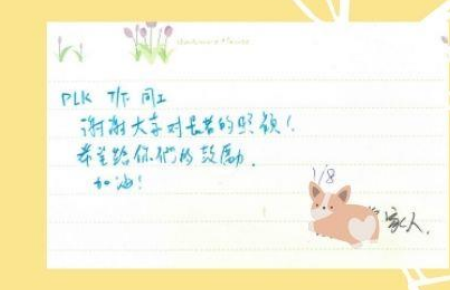 PLK 7/F 同工
謝謝大家對長者的照顧！
希望給你們的鼓勵.
加油！
1/8
家人.